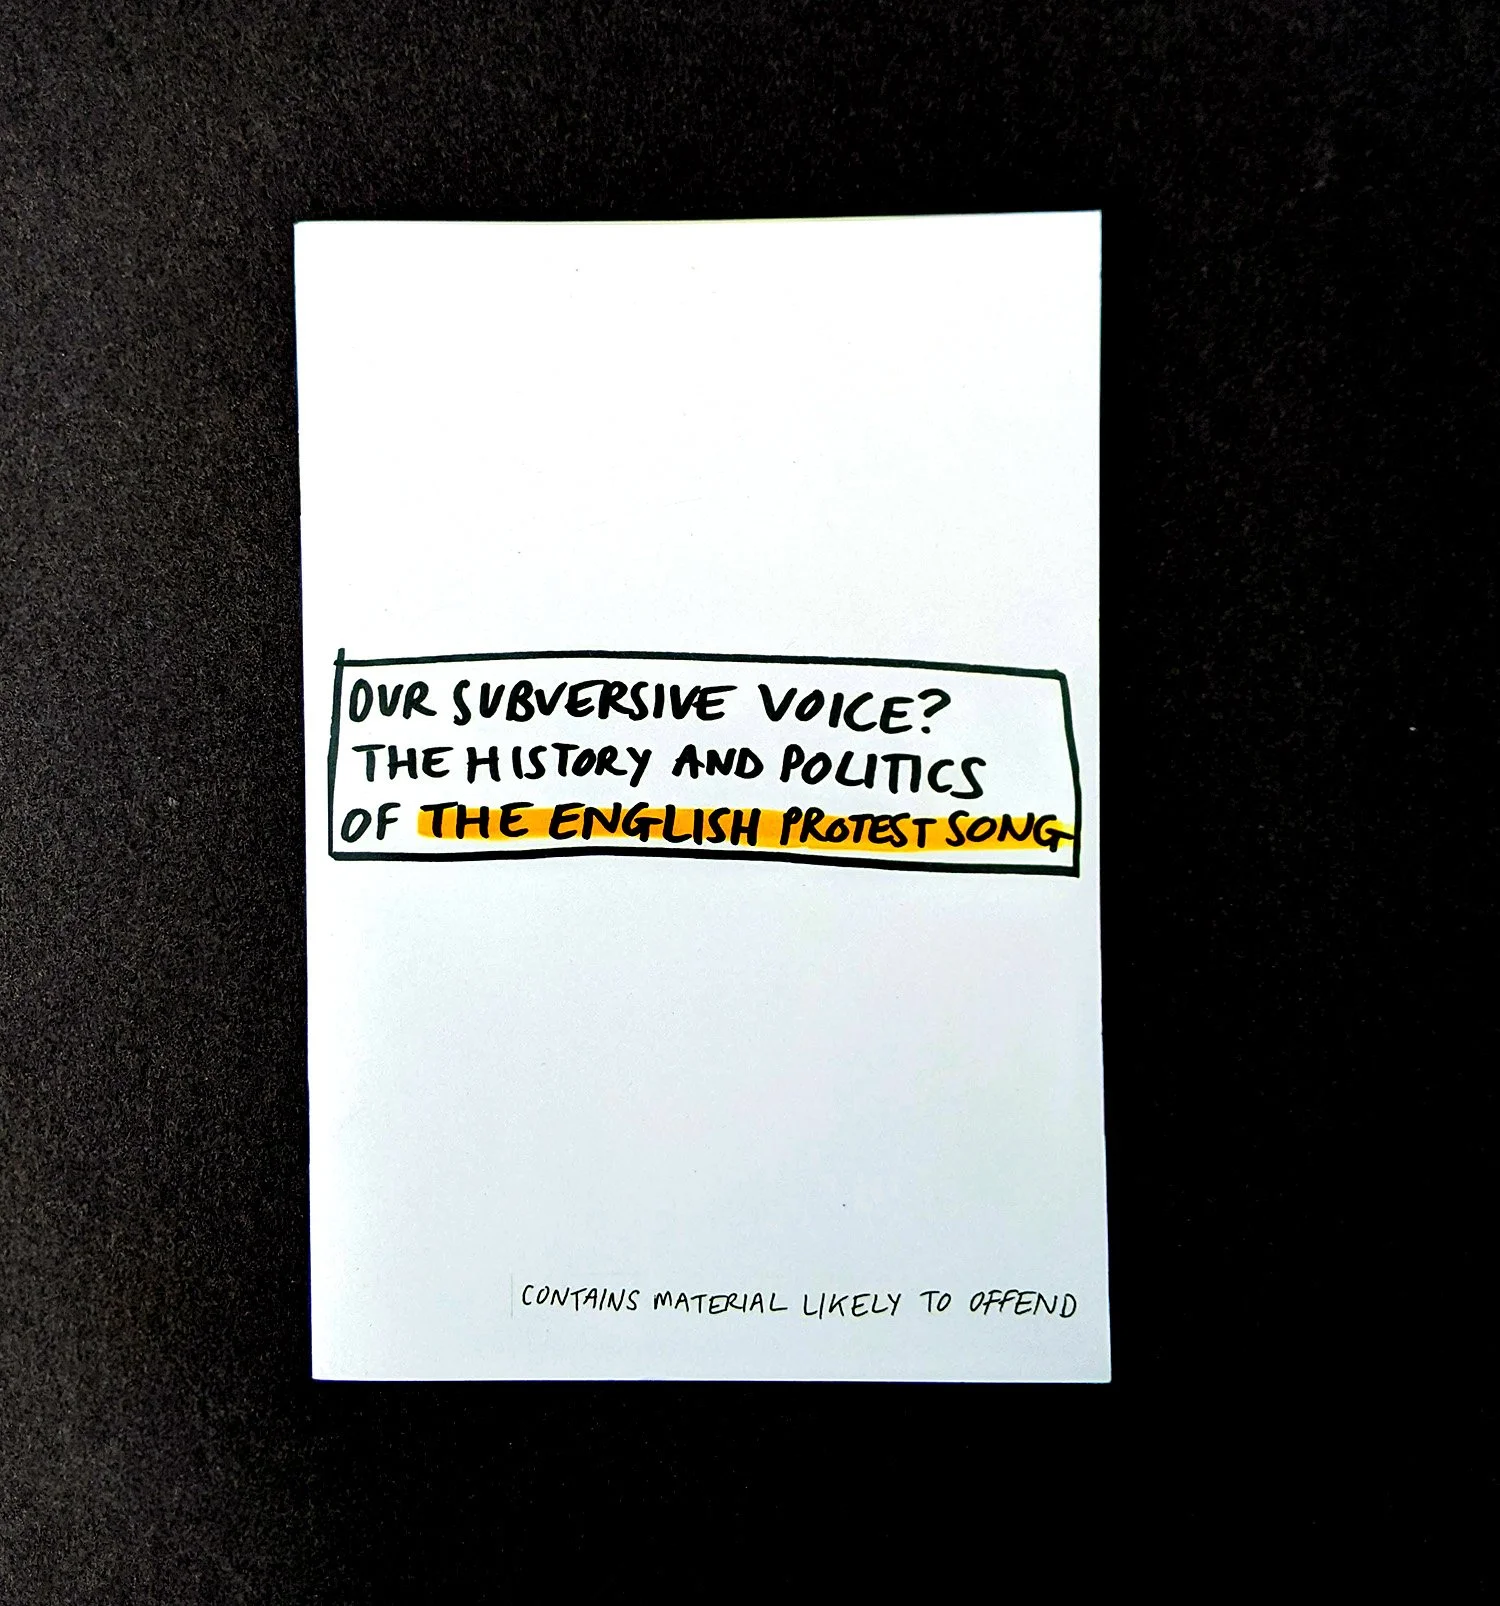 OUR SUBVERSIVE VOICE?
THE HISTORY AND POLITICS
OF THE ENGLISH PROTEST SONG
CONTAINS MATERIAL LIKELY TO OFFEND